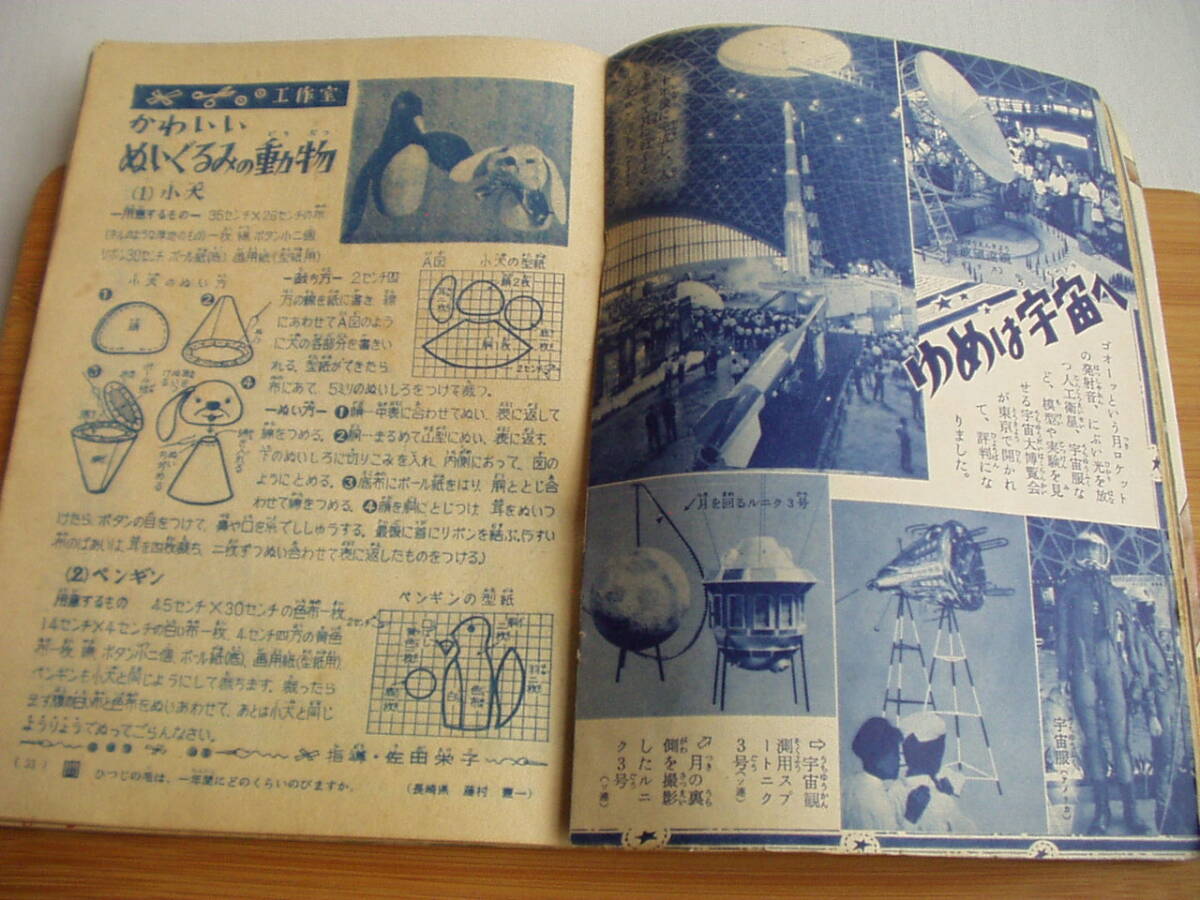 工作室
かわいい
ぬいぐるみの動物
(1) 小犬
—用意するもの— 35センチ×26センチの布
(ネルのような厚地のもの)一枚 綿 ボタン小二個
リボン30センチ ボール紙(普) 画用紙(型紙用)
小犬のぬい方
A図 小犬の型紙
—裁ち方— 2センチ四
方の線を紙に書き 線
にあわせてA図のよう
に犬の各部分を書きい
れる。型紙ができたら
布にあて、5ミリのぬいしろをつけて裁つ。
—ぬい方— ❶顔—中表に合わせてぬい、表に返して
綿をつめる。❷胴—まるめて山型にぬい、表に返す
下のぬいしろに切りこみを入れ、内側におって、図の
ようにとめる。❸底布にボール紙をはり、胴ととじ合
わせて綿をつめる。❹顔を胴にとじつけ 耳をぬいつ
けたら、ボタンの目をつけて、鼻や口を糸でししゅうする。最後に首にリボンを結ぶ。(うすい
布のばあいは、耳を四枚裁ち、二枚ずつぬい合わせて表に返したものをつける)
(2) ペンギン
用意するもの 45センチ×30センチの色布一枚
14センチ×4センチの白い布一枚、4センチ四方の黄色
布一枚、綿、ボタン小二個、ボール紙(普)、画用紙(型紙用)
ペンギンも小犬と同じようにして裁ちます。裁ったら
まず腹の白い布と色布をぬいあわせて、あとは小犬と同じ
ようりょうでぬってごらんなさい。
ペンギンの型紙
指導・佐田栄子
(31) 問 ひつじの毛は、一年間にどのくらいのびますか。 (長崎県 藤村 憲一)
ゆめは宇宙へ
ゴオーッという月ロケット
の発射音、にぶい光を放
つ人工衛星、宇宙服な
ど、模型や実験を見
せる宇宙大博覧会
が東京で開かれ
て、評判にな
りました。
↙月を回るルニク3号
⇨宇宙観
測用スプ
ートニク
3号(ソ連)
⇗月の裏
側を撮影
したルニ
ク3号(ソ連)
宇宙服(アメリカ)